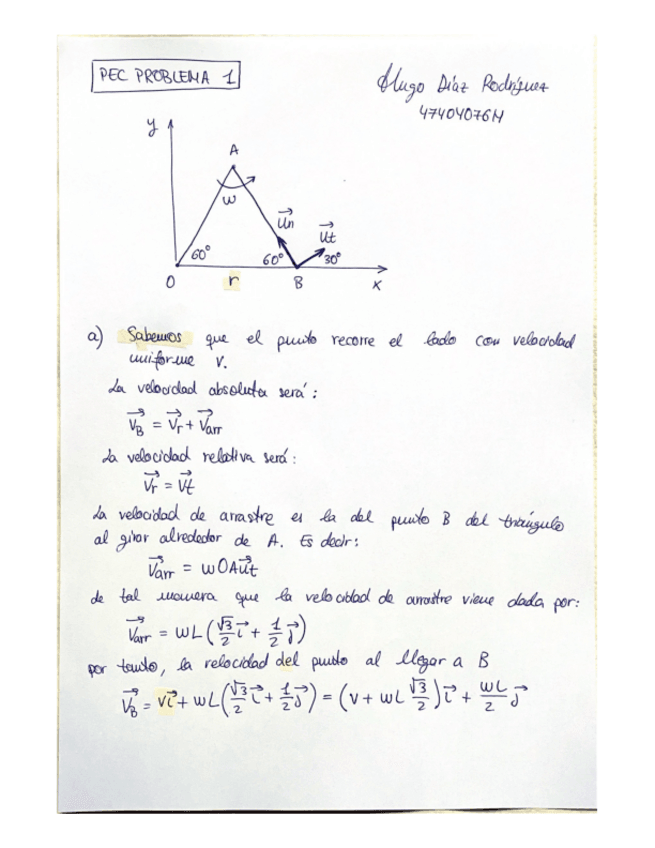 PEC PROBLEMA 1
Hugo Díaz Rodríguez
47404076M
y
A
w
Un
Ut
60°
60°
30°
O
r
B
x
a) Sabemos que el punto recorre el lado con velocidad
uniforme v.
La velocidad absoluta será:
V⃗_B = V⃗_r + V⃗_arr
La velocidad relativa será:
V⃗_r = V⃗t
La velocidad de arrastre es la del punto B del triángulo
al girar alrededor de A. Es decir:
V⃗_arr = wOAu⃗t
de tal manera que la velocidad de arrastre viene dada por:
V⃗_arr = wL(√3/2 i⃗ + 1/2 j⃗)
por tanto, la velocidad del punto al llegar a B
V⃗_B = vi⃗ + wL(√3/2 i⃗ + 1/2 j⃗) = (v + wL √3/2)i⃗ + wL/2 j⃗